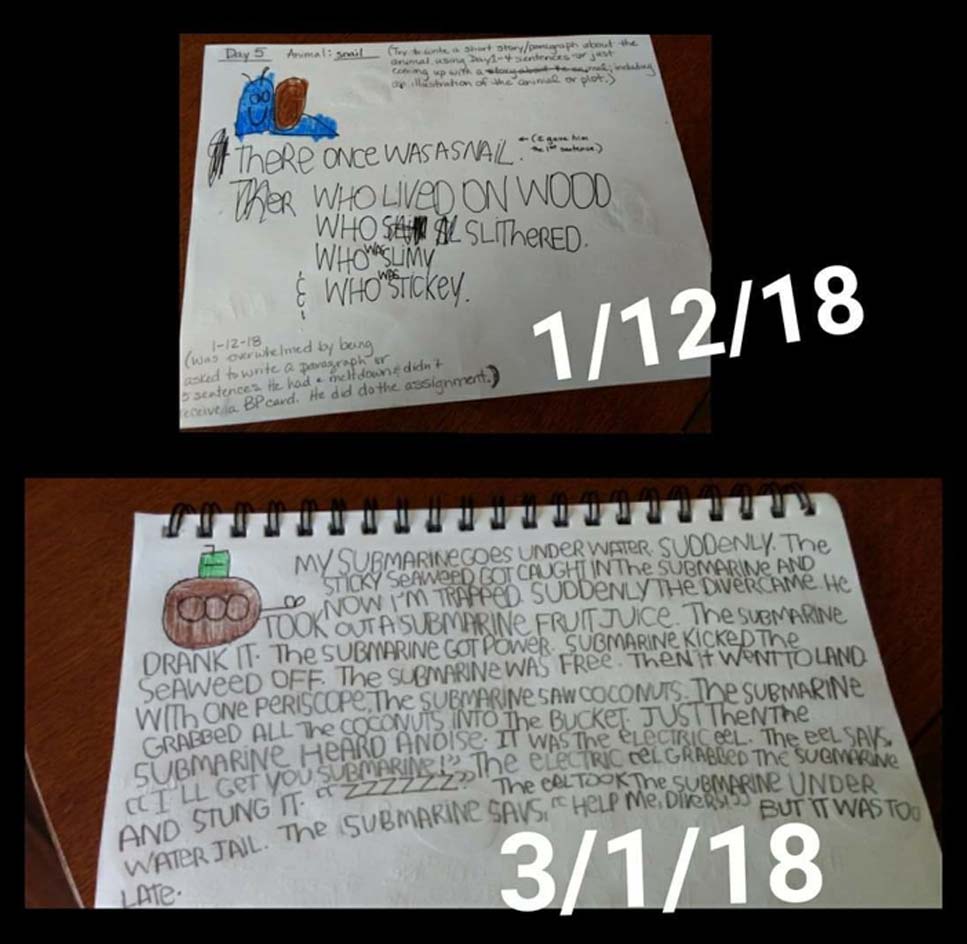 Day 5 Animal: snail (Try to write a short story/paragraph about the
animal using Day 1-4 sentences or just
coming up with a story about the animal; including
an illustration of the animal or plot.)
THERE ONCE WAS A SNAIL. ← (I gave him
the 1st sentence.)
WHO LIVED ON WOOD
WHO SLITHERED.
WHO WAS SLIMY
& WHO WAS STICKEY.
1-12-18
(Was overwhelmed by being
asked to write a paragraph or
5 sentences. He had a meltdown & didn't
receive a BP card. He did do the assignment.)
1/12/18
MY SUBMARINE GOES UNDER WATER. SUDDENLY. The
STICKY SEAWEED GOT CAUGHT IN The SUBMARINE AND
NOW I'M TRAPPED. SUDDENLY THE DIVER CAME. HE
TOOK OUT A SUBMARINE FRUIT JUICE. The SUBMARINE
DRANK IT. The SUBMARINE GOT POWER. SUBMARINE KICKED The
SEAWEED OFF. The SUBMARINE WAS FREE. THEN it WENT TO LAND
WITH ONE PERISCOPE. The SUBMARINE SAW COCONUTS. The SUBMARINE
GRABBED ALL The COCONUTS INTO The BUCKET. JUST THEN The
SUBMARINE HEARD A NOISE. IT WAS The ELECTRIC eeL. The eeL SAYS,
“I'LL GET YOU SUBMARINE!” The ELECTRIC eeL GRABBED The SUBMARINE
AND STUNG IT. “ZZZZZZZ” The eeL TOOK The SUBMARINE UNDER
WATER JAIL. The SUBMARINE SAYS, “HELP Me, DIVERS!” BUT IT WAS TOO
LATE.
3/1/18